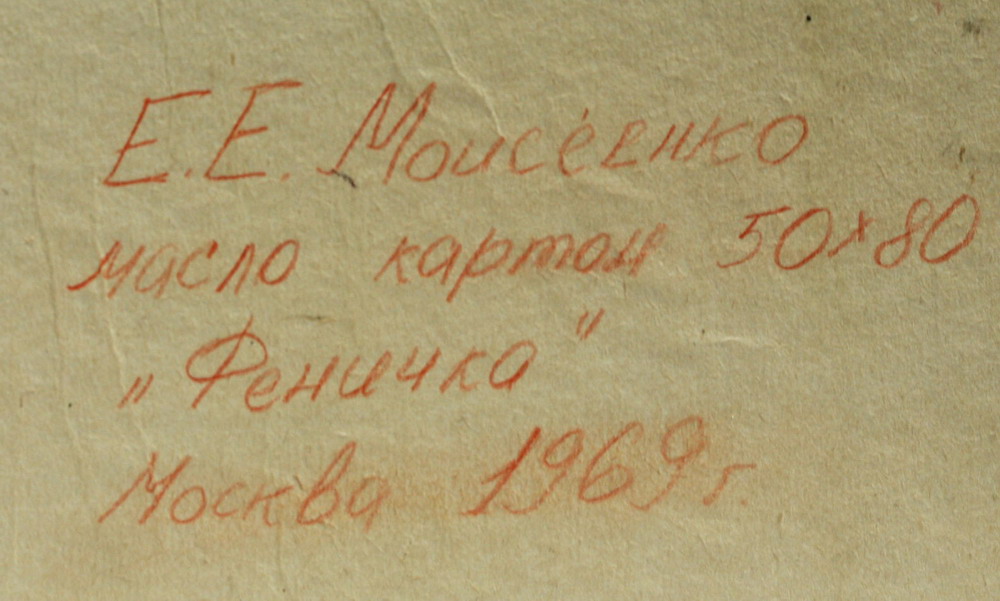 Е.Е. Моисеенко
масло картон 50х80
„Феничка"
Москва 1969 г.